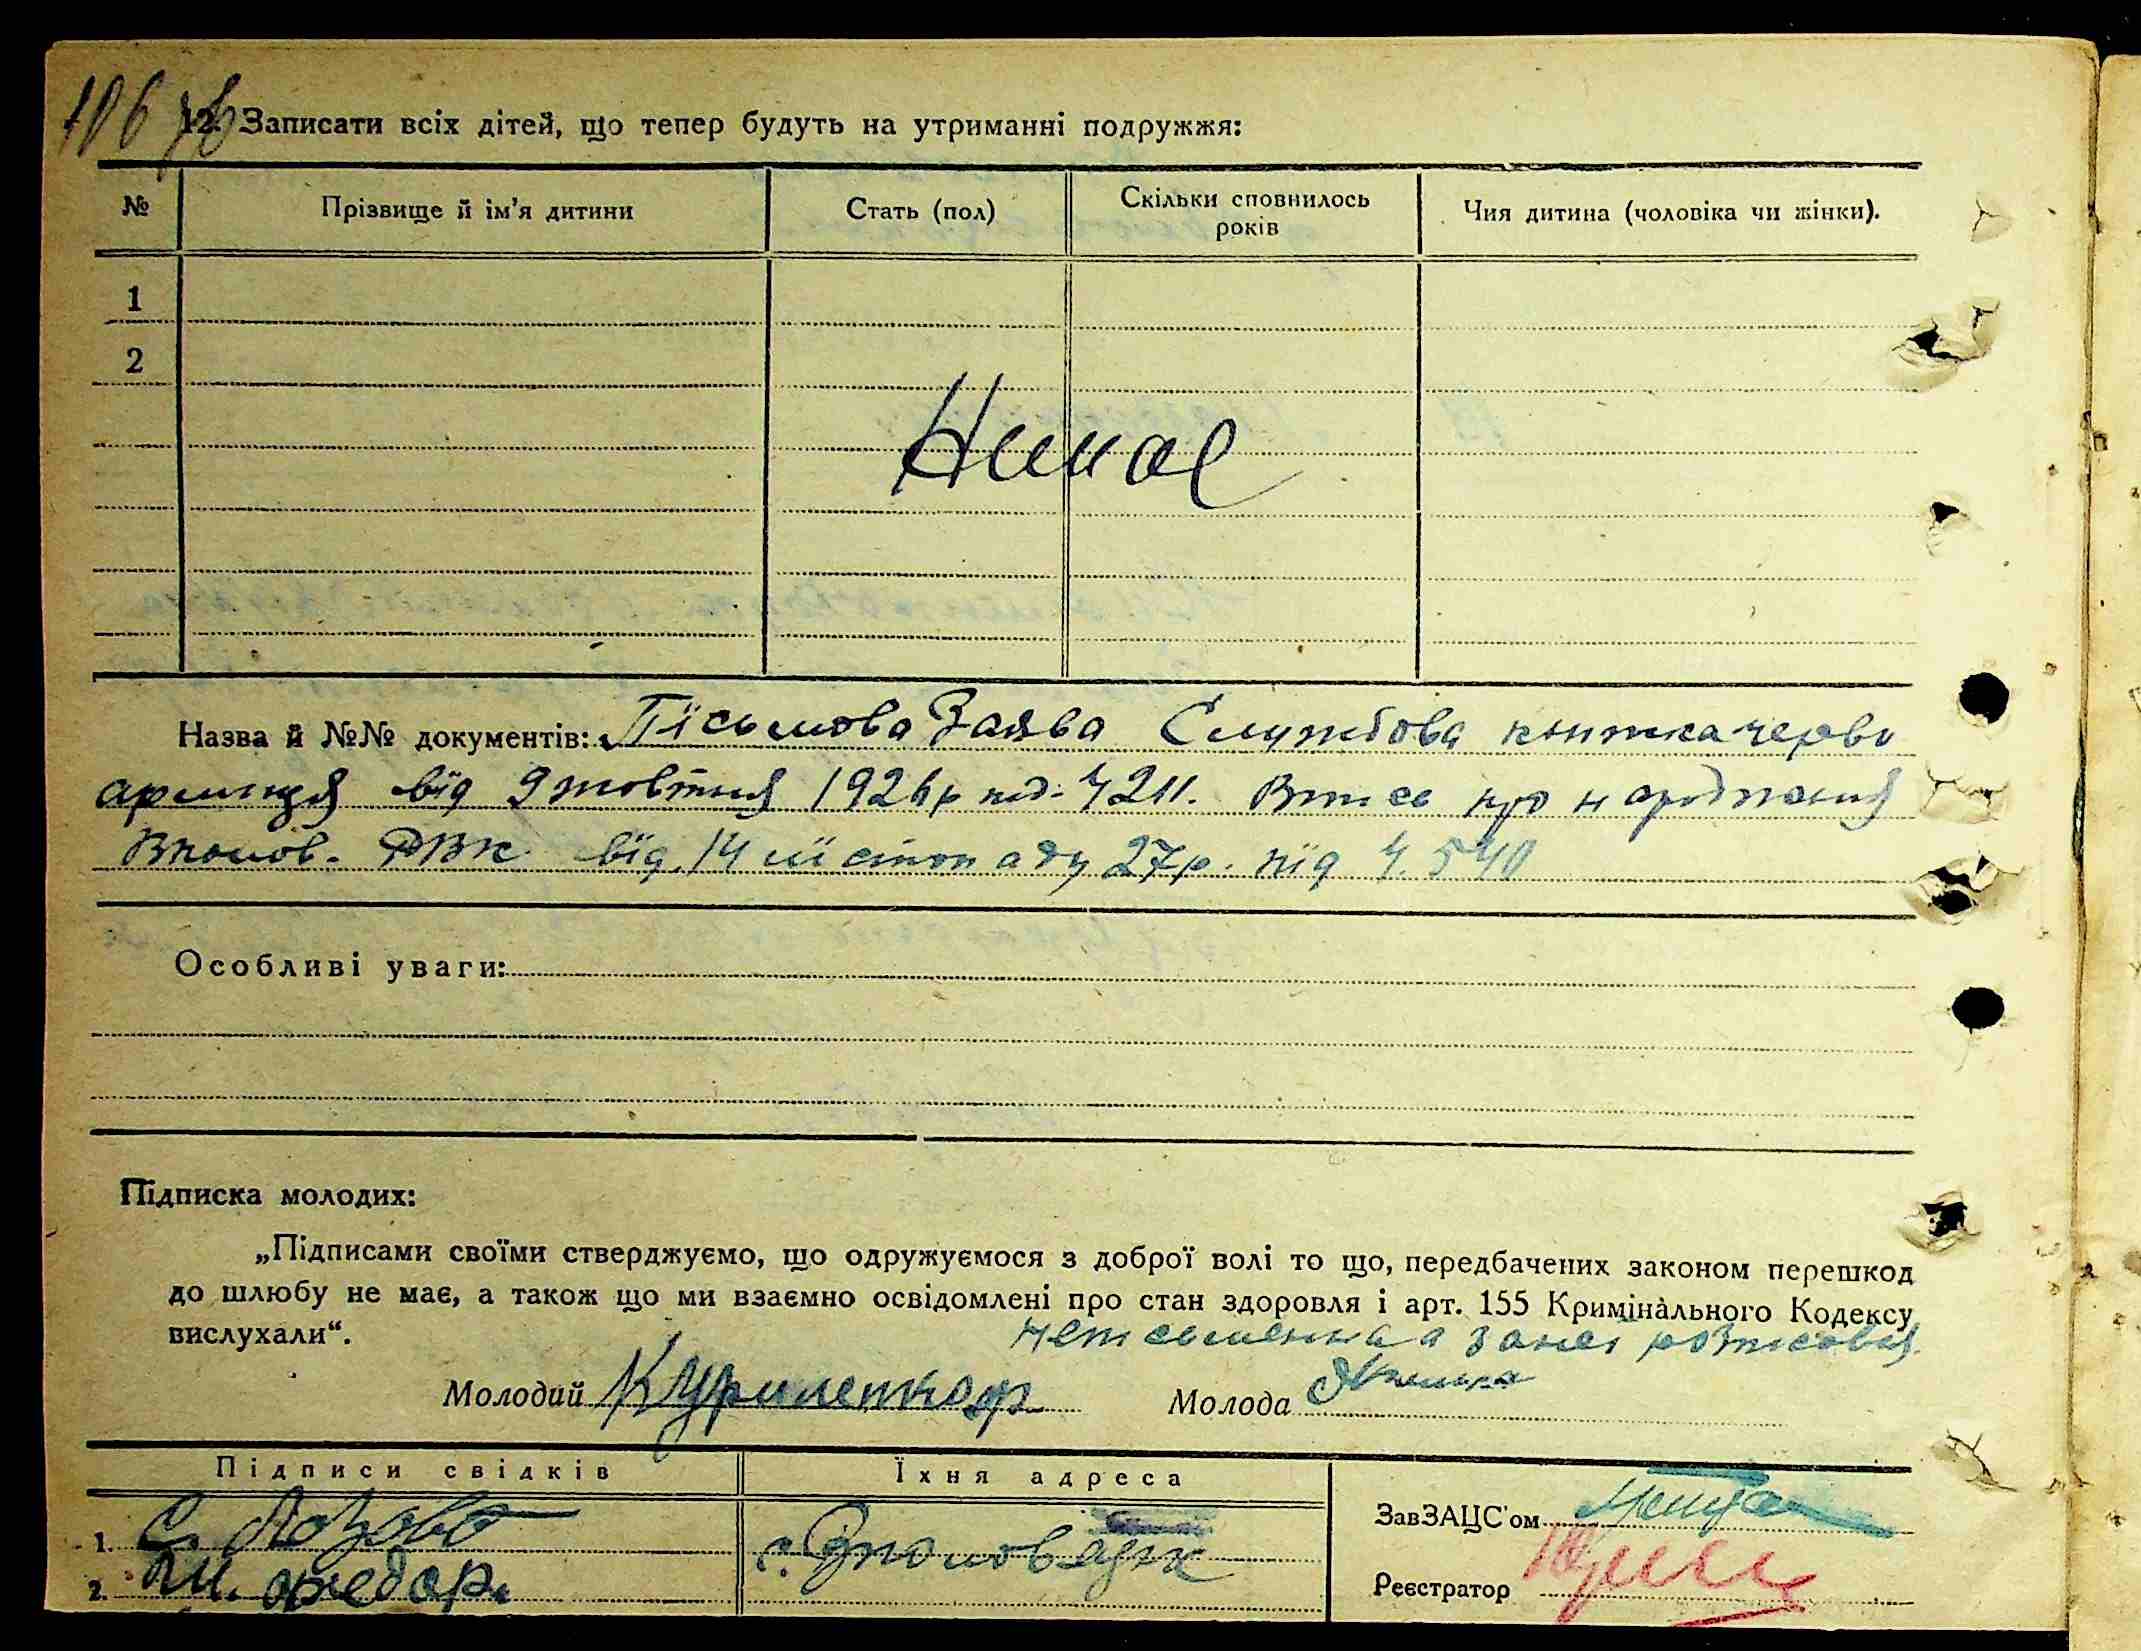 106 зв
12. Записати всіх дітей, що тепер будуть на утриманні подружжя:
№ Прізвище й ім'я дитини Стать (пол) Скільки сповнилось років Чия дитина (чоловіка чи жінки).
1
2
Немає
Назва й №№ документів: Пісьмова Заява Службова книжка черво
армица від 9 жовтня 1926р під. 4211. Впись про народження
від. 14 листопаду 27р. під ч. 540
Особливі уваги:
Підписка молодих:
„Підписами своїми стверджуємо, що одружуємося з доброї волі то що, передбачених законом перешкод
до шлюбу не має, а також що ми взаємно освідомлені про стан здоровля і арт. 155 Кримінального Кодексу
вислухали“.
неписьменна а за неї
Молодий Куриленко Ф Молода
Підписи свідків Їхня адреса
1. С.
ЗавЗАЦС'ом
2. Федор.
Реєстратор